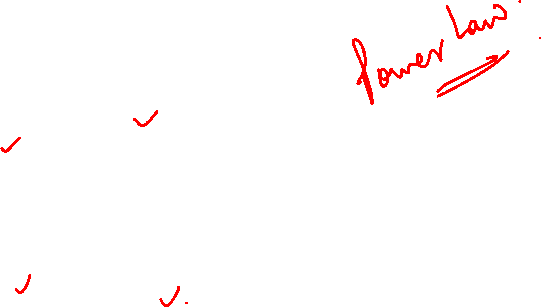 Power Law